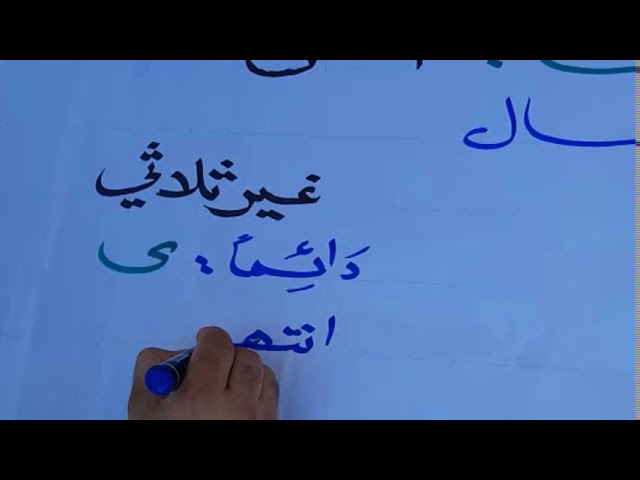 غير ثلاثي
دَائِماً : ى
انتهـ